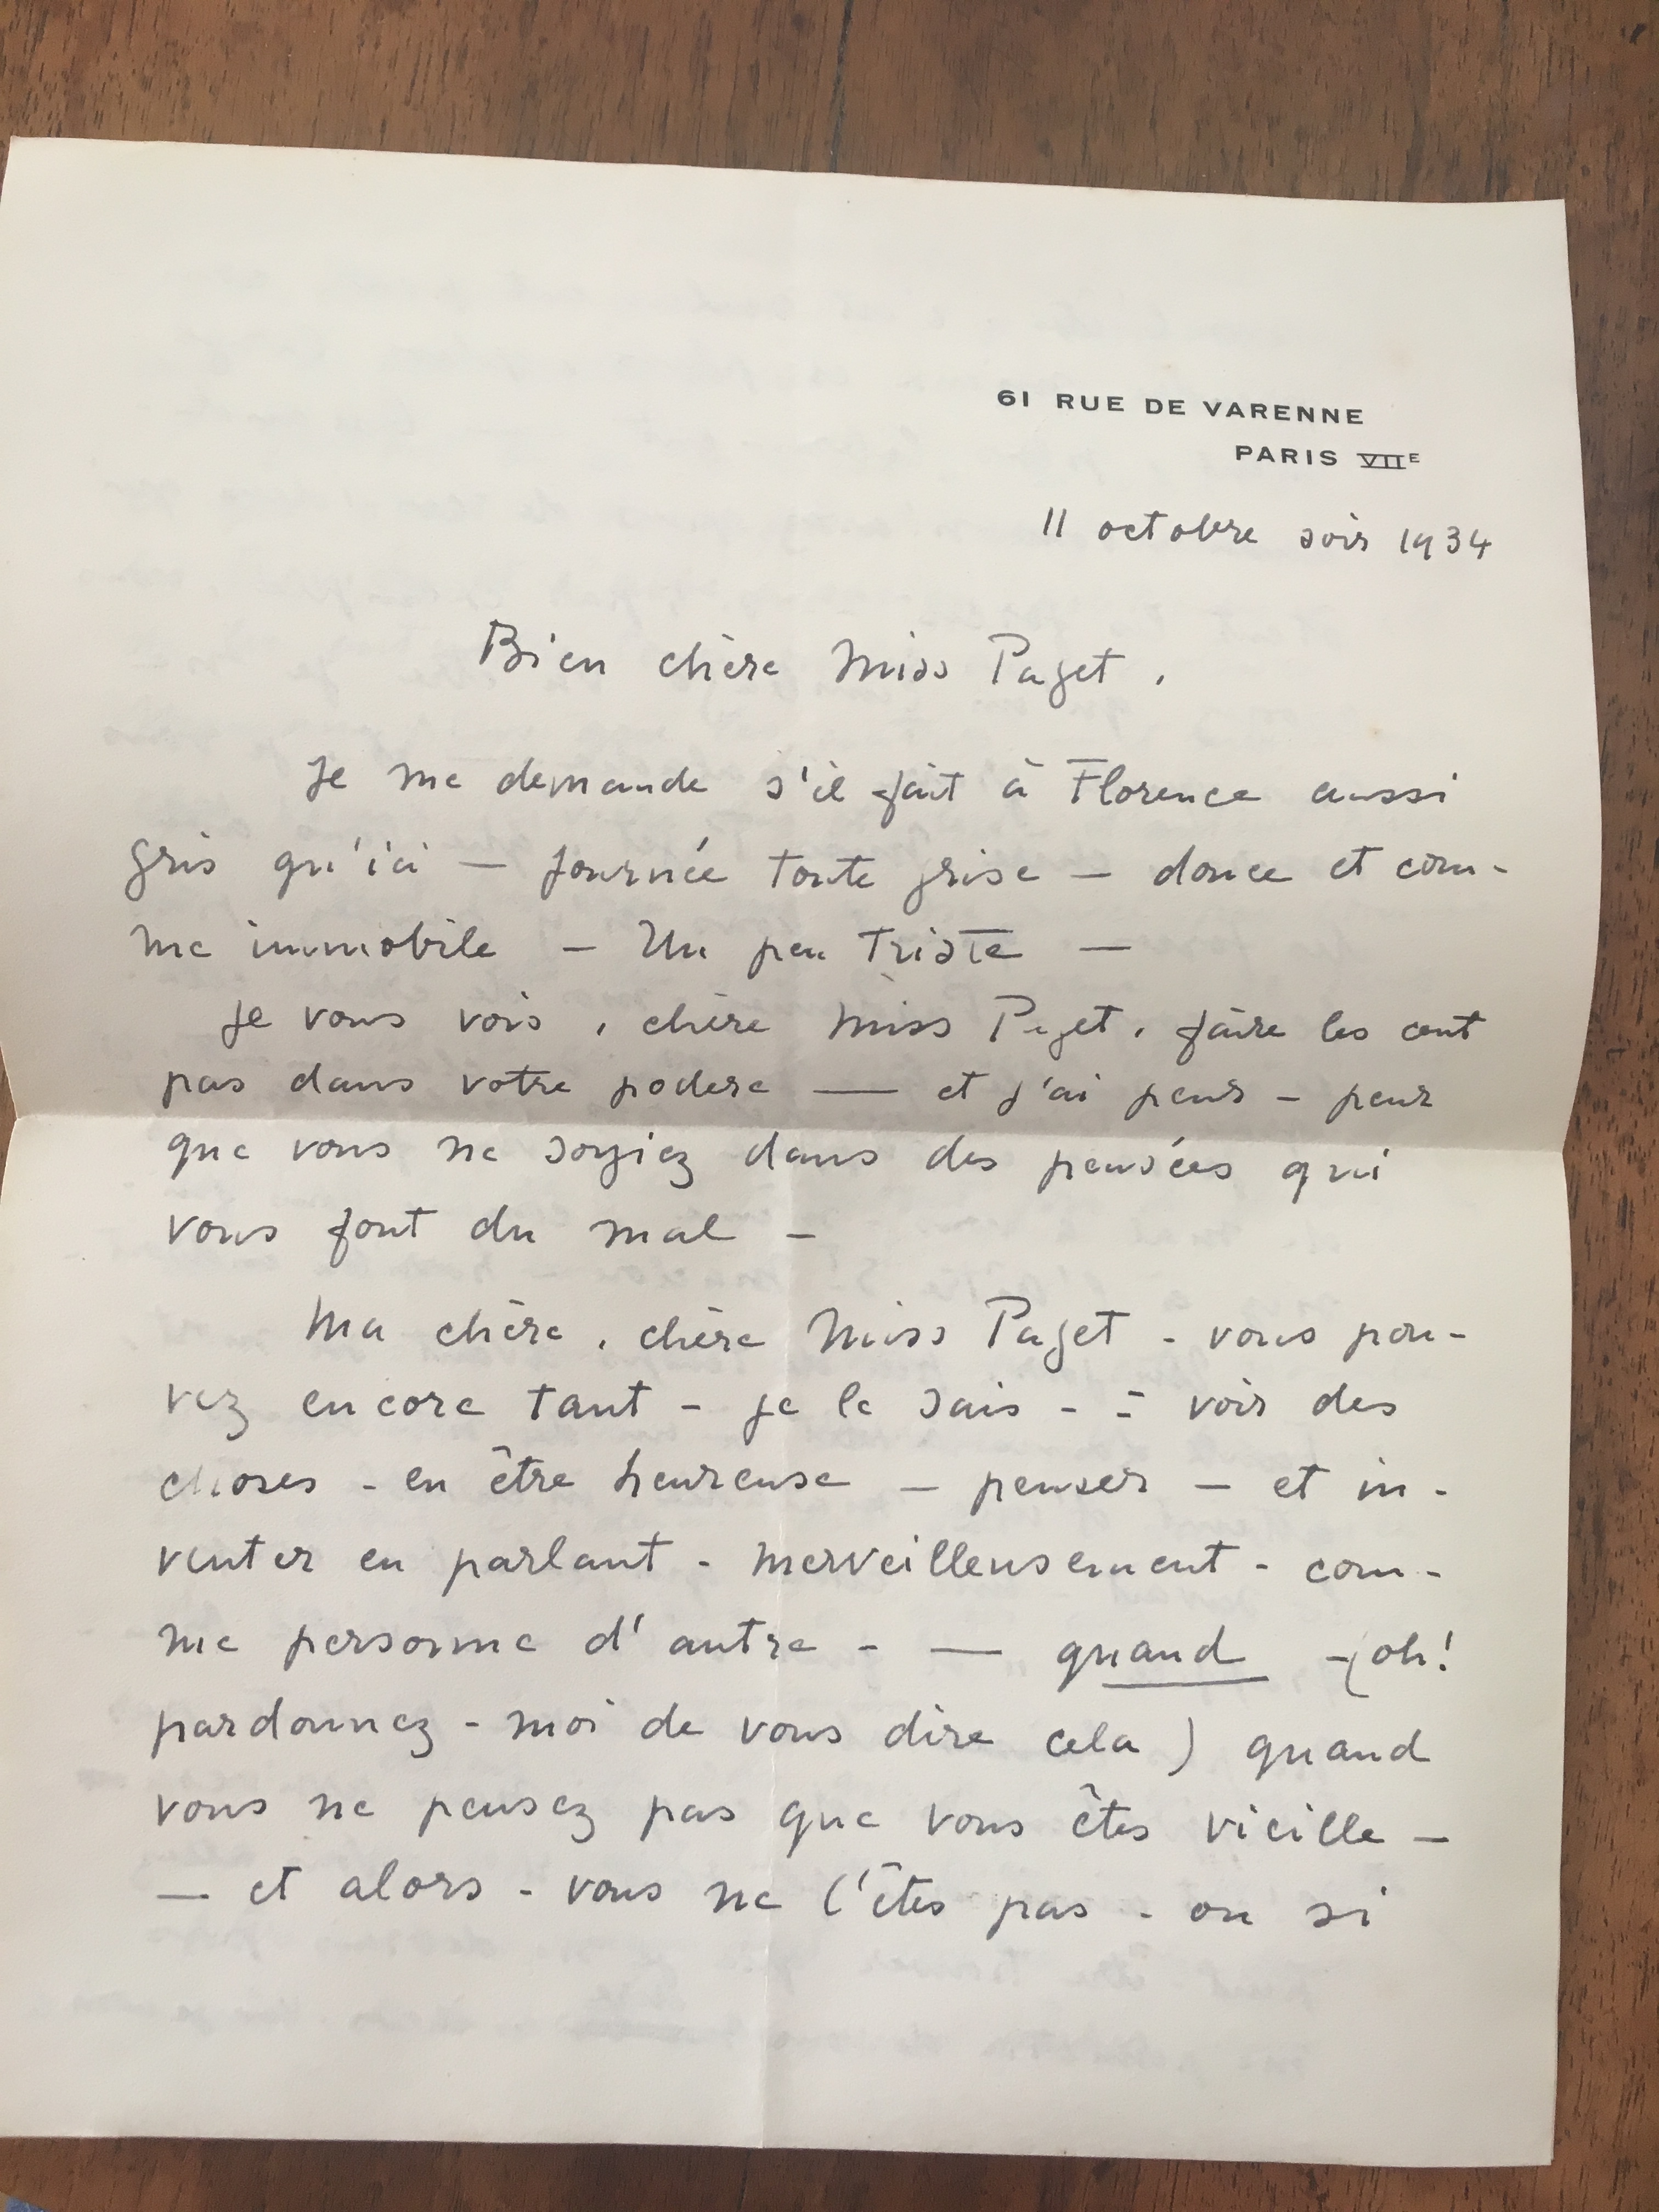 61 RUE DE VARENNE
PARIS VIIE
11 octobre soir 1934
Bien chère Miss Paget,
Je me demande s'il fait à Florence aussi
gris qu'ici — Journée toute grise — douce et com-
me immobile — Un peu triste —
Je vous vois, chère Miss Paget, faire les cent
pas dans votre podere — et j'ai peur - peur
que vous ne soyiez dans des pensées qui
vous font du mal -
Ma chère, chère Miss Paget - vous pou-
vez encore tant - je le sais - : voir des
choses - en être heureuse — penser — et in-
venter en parlant - merveilleusement - com-
me personne d'autre - — quand - (oh!
pardonnez-moi de vous dire cela) quand
vous ne pensez pas que vous êtes vieille —
— et alors - vous ne l'êtes pas - ou si